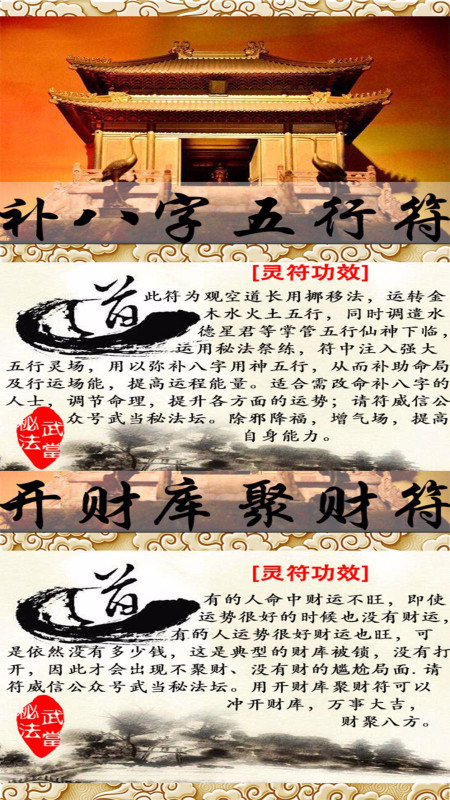 补八字五行符
[灵符功效]
道
此符为观空道长用挪移法，运转金
木水火土五行，同时调遣水
德星君等掌管五行仙神下临，
运用秘法祭练，符中注入强大
五行灵场，用以弥补八字用神五行，从而补助命局
及行运场能，提高运程能量。适合需改命补八字的
人士，调节命理，提升各方面的运势；请符威信公
众号武当秘法坛。除邪降福，增气场，提高
自身能力。
武当
秘法
开财库聚财符
[灵符功效]
道
有的人命中财运不旺，即使
运势很好的时候也没有财运，
有的人运势很好财运也旺，可
是依然没有多少钱，这是典型的财库被锁，没有打
开，因此才会出现不聚财、没有财的尴尬局面.请
符威信公众号武当秘法坛。用开财库聚财符可以
冲开财库，万事大吉，
财聚八方。
武当
秘法